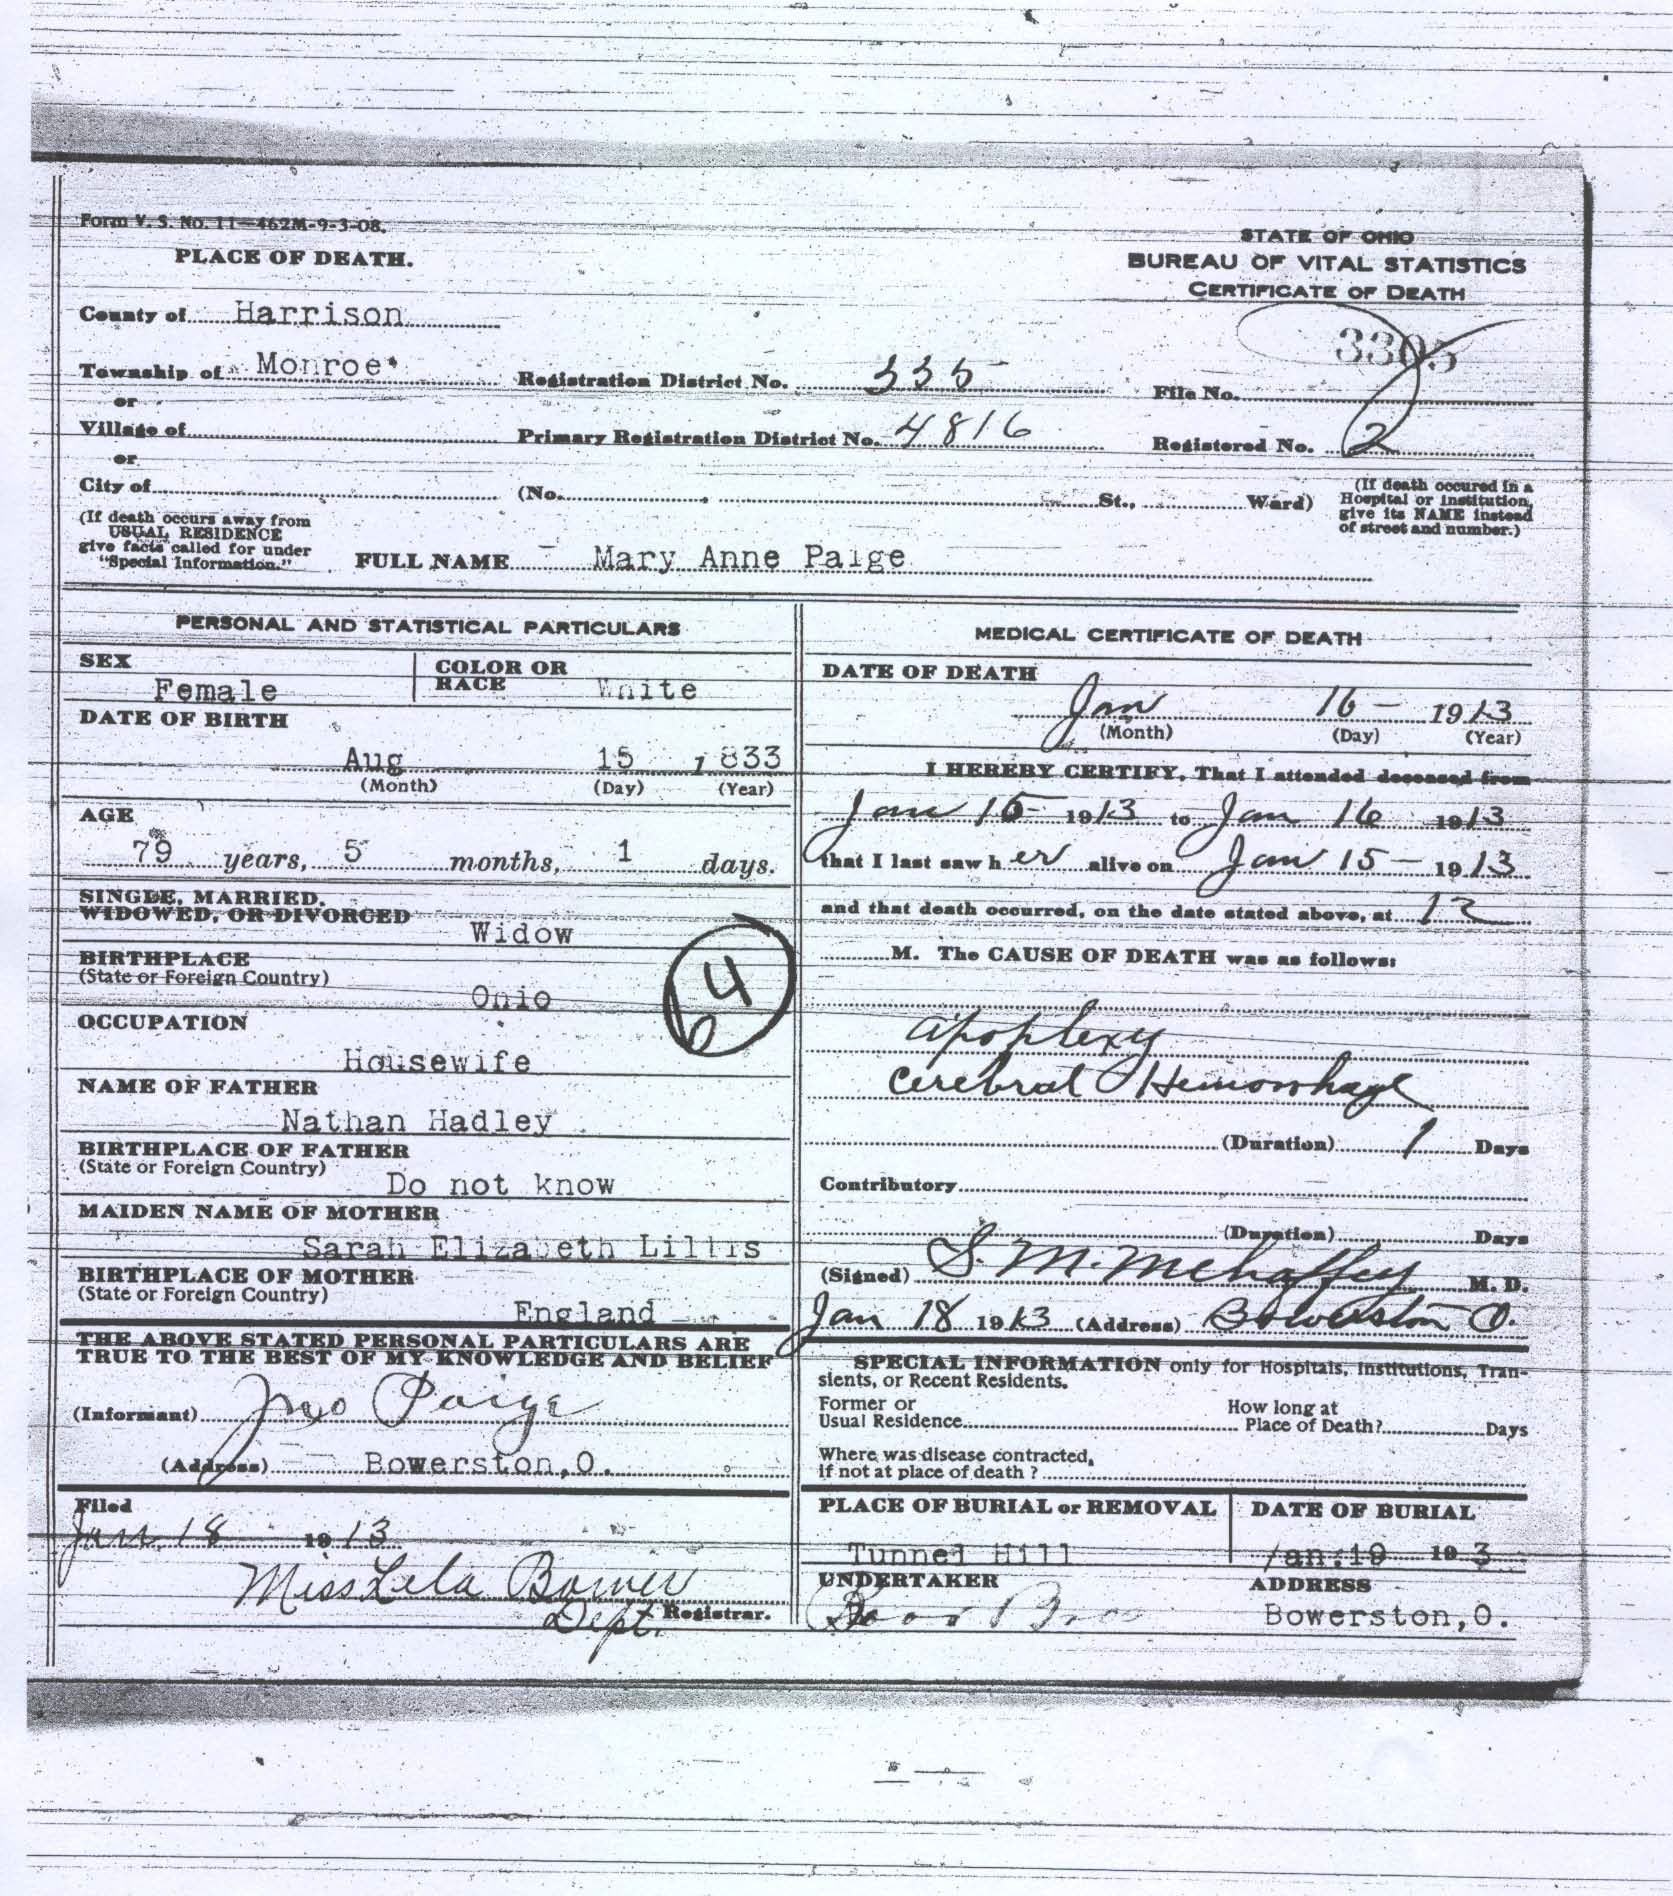 Form V. S. No. 11—462M-9-3-08.
PLACE OF DEATH.
STATE OF OHIO
BUREAU OF VITAL STATISTICS
CERTIFICATE OF DEATH
County of Harrison
3305
Township of Monroe
Registration District No. 335
File No.
or
Village of
Primary Registration District No. 4816
Registered No. 2
or
City of (No. , St., Ward)
(If death occured in a
Hospital or institution,
give its NAME instead
of street and number.)
(If death occurs away from
USUAL RESIDENCE
give facts called for under
"Special Information."
FULL NAME Mary Anne Paige
PERSONAL AND STATISTICAL PARTICULARS
SEX
Female
COLOR OR
RACE White
DATE OF BIRTH
Aug 15 1833
(Month) (Day) (Year)
AGE
79 years, 5 months, 1 days.
SINGLE, MARRIED,
WIDOWED, OR DIVORCED
Widow
BIRTHPLACE
(State or Foreign Country)
Ohio
64
OCCUPATION
Housewife
NAME OF FATHER
Nathan Hadley
BIRTHPLACE OF FATHER
(State or Foreign Country)
Do not know
MAIDEN NAME OF MOTHER
Sarah Elizabeth Lillis
BIRTHPLACE OF MOTHER
(State or Foreign Country)
England
THE ABOVE STATED PERSONAL PARTICULARS ARE
TRUE TO THE BEST OF MY KNOWLEDGE AND BELIEF
(Informant) Paige
(Address) Bowerston,O.
Filed
Jan. 18 1913
Miss Lela Bower
Dept. Registrar.
MEDICAL CERTIFICATE OF DEATH
DATE OF DEATH
Jan 16 — 1913
(Month) (Day) (Year)
I HEREBY CERTIFY, That I attended deceased from
Jan 15 1913 to Jan 16 1913
that I last saw her alive on Jan 15 — 1913
and that death occurred, on the date stated above, at 12
M. The CAUSE OF DEATH was as follows:
apoplexy
Cerebral Hemorrhage
(Duration) 1 Days
Contributory
(Duration) Days
(Signed) S. M. Mehaffey M. D.
Jan 18 1913 (Address) Bowerston O.
SPECIAL INFORMATION only for Hospitals, Institutions, Tran-
sients, or Recent Residents.
Former or
Usual Residence
How long at
Place of Death? Days
Where was disease contracted,
if not at place of death ?
PLACE OF BURIAL or REMOVAL
Tunnel Hill
DATE OF BURIAL
Jan. 19 1913
UNDERTAKER
Bros
ADDRESS
Bowerston,O.